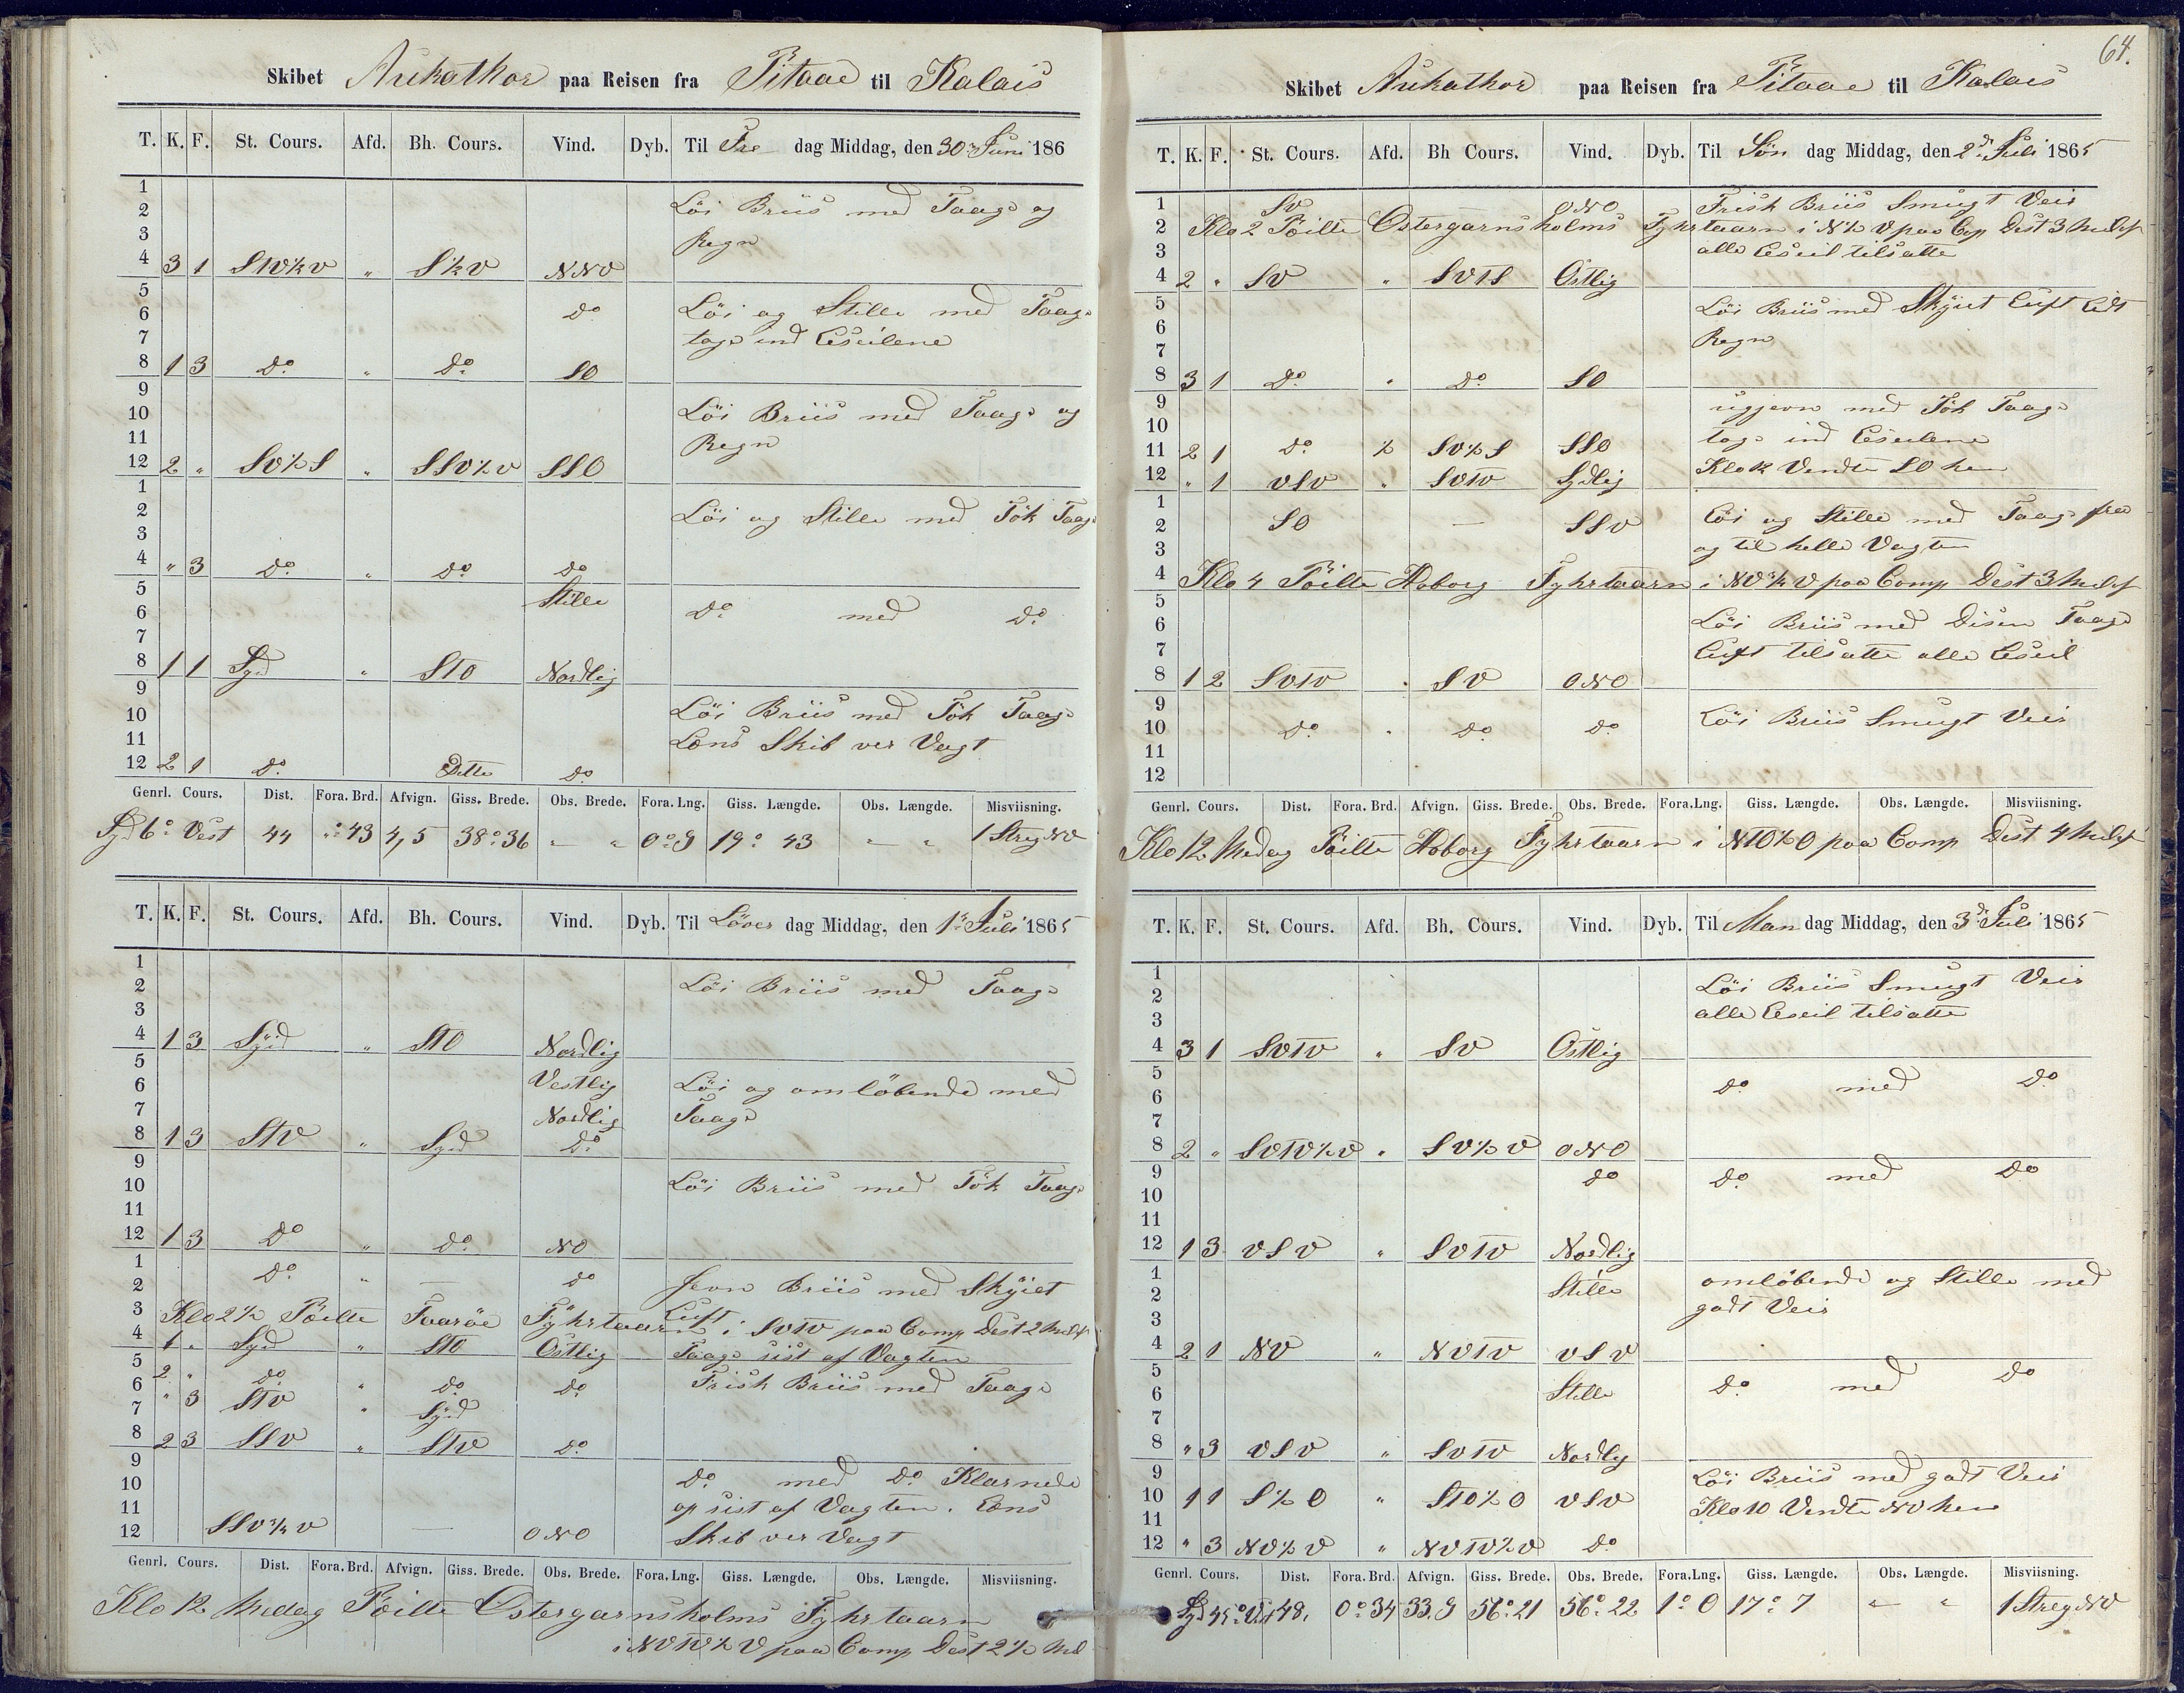 Skibet Aukathor paa Reisen fra Pitaae til Kalais
T. K. F. St. Cours. Afd. Bh. Cours. Vind. Dyb. Til Fre dag Middag, den 30. Juni 186
1
2 Löi Briis med Taage og
3 Regn
4 3 1 " NNV
5
6 Do Löi og Stille med Taage
7 tage ind
8 1 3 Do. " Do. SO
9
10 Löi Briis med Taage og
11 Regn
12 2 " SV½S " SSV½V SSO
1
2 Löi og Stille med Tök Taage
3
4 " 3 Do. " Do. Do
5 Stille
6 Do med Do.
7
8 1 1 Syd " STO Nordlig
9
10 Löi Briis med Tök Taage
11 Lens Skib ver Vagt
12 2 1 Do. Ditto Do.
Genrl. Cours. Dist. Fora. Brd. Afvign. Giss. Brede. Obs. Brede. Fora. Lng. Giss. Længde. Obs. Længde. Misviisning.
Syd 6° Vest 44 " : 43 4,5 38° 36 " " 0° 9 19° 43 " " 1 Streg NV
T. K. F. St. Cours. Afd. Bh. Cours. Vind. Dyb. Til Löver dag Middag, den 1. Juli 1865
1
2 Löi Briis med Taage
3
4 1 3 Syd " STO Nordlig
5
6 Vestlig Löi og omlöbende med
7 Nordlig Taage
8 1 3 STV " Syd Do
9
10 Löi Briis med Tök Taage
11
12 1 3 Do " Do. NO
1 Do. " — Do
2 Jevn Briis med Skyiet
3 Klo 2½ Peilte Faaröe Fyhrtaarn i SVTV paa Comp Dest 2 Luft
4 1 " Syd " STO Östlig Taage sist af Vagten
5 2 " Do. " Do. Do. Frisk Briis med Taage
6 " 3 STV " Syd
7
8 2 3 SSV " STV Do.
9
10 Do. med Do. Klarnede
11 op sist af Vagten. Lens
12 — ONO Skib ver Vagt
Genrl. Cours. Dist. Fora. Brd. Afvign. Giss. Brede. Obs. Brede. Fora. Lng. Giss. Længde. Obs. Længde. Misviisning.
Klo 12 Medag Peilte Östergarnsholms Fyhrtaarn
i NVTV½V paa Comp Dest 2½
64.
Skibet Aukathor paa Reisen fra Pitaae til Kalais
T. K. F. St. Cours. Afd. Bh Cours. Vind. Dyb. Til Søn dag Middag, den 2d. Juli 1865
1 SV ONO Frisk Briis Smugt Veir
2 Klo 2 Peilte Östergarnsholms Fyhrtaarn i paa Dest 3
3 alle tilsatte
4 2 " SV " SVTS Östlig
5 Löi Briis med Skyiet Luft Lidt
6
7 Regn
8 3 1 Do. " Do. SO
9 ugjevn med Tök Taage
10 tage ind
11 2 1 Do. ½ SV½S SSO
12 " 1 VSV " SVTV Sydlig Klo 12 Vendte SO hen
1
2 SO — SSV Löi og Stille med Taage fra
3 og til helle Vagten
4 Klo 4 Peilte Hoborg Fyhrtaarn i paa Comp Dest 3
5
6 Löi Briis med Disen Taage
7 Luft tilsatte alle
8 1 2 SVTV " SV ONO
9
10 Do. " Do. Do. Löi Briis Smugt Veir
11
12
Genrl. Cours. Dist. Fora. Brd. Afvign. Giss. Brede. Obs. Brede. Fora.Lng. Giss. Længde. Obs. Længde. Misviisning.
Klo 12 Medag Peilte Hoborg Fyhrtaarn i NTO½O paa Comp Dest 4
T. K. F. St. Cours. Afd. Bh. Cours. Vind. Dyb. Til Man dag Middag, den 3d. Juli 1865
1
2 Löi Briis Smugt Veir
3 alle tilsatte
4 3 1 SVTV " SV Östlig
5
6 Do med Do
7
8 2 " SVTV½V " SV½V ONO
9 Do Do. med Do
10
11
12 1 3 VSV " SVTV Nordlig
1 Stille omlöbende og Stille med
2
3 godt Veir
4 2 1 NV " NVTV VSV
5
6 Stille Do med Do
7
8 " 3 VSV " SVTV Nordlig
9 Löi Briis med godt Veir
10 1 1 S½O " STO½O VSV Klo 10 Vendte NV hen
11
12 " 3 NV½V " NVTV½V Do.
Genrl. Cours. Dist. Fora. Brd. Afvign. Giss. Brede. Obs. Brede. Fora.Lng. Giss. Længde. Obs. Længde. Misviisning.
Syd 45° Vst 48, 0° 34 33,9 56° 21 56° 22 1° 0 17° 7 " " 1 Streg NV